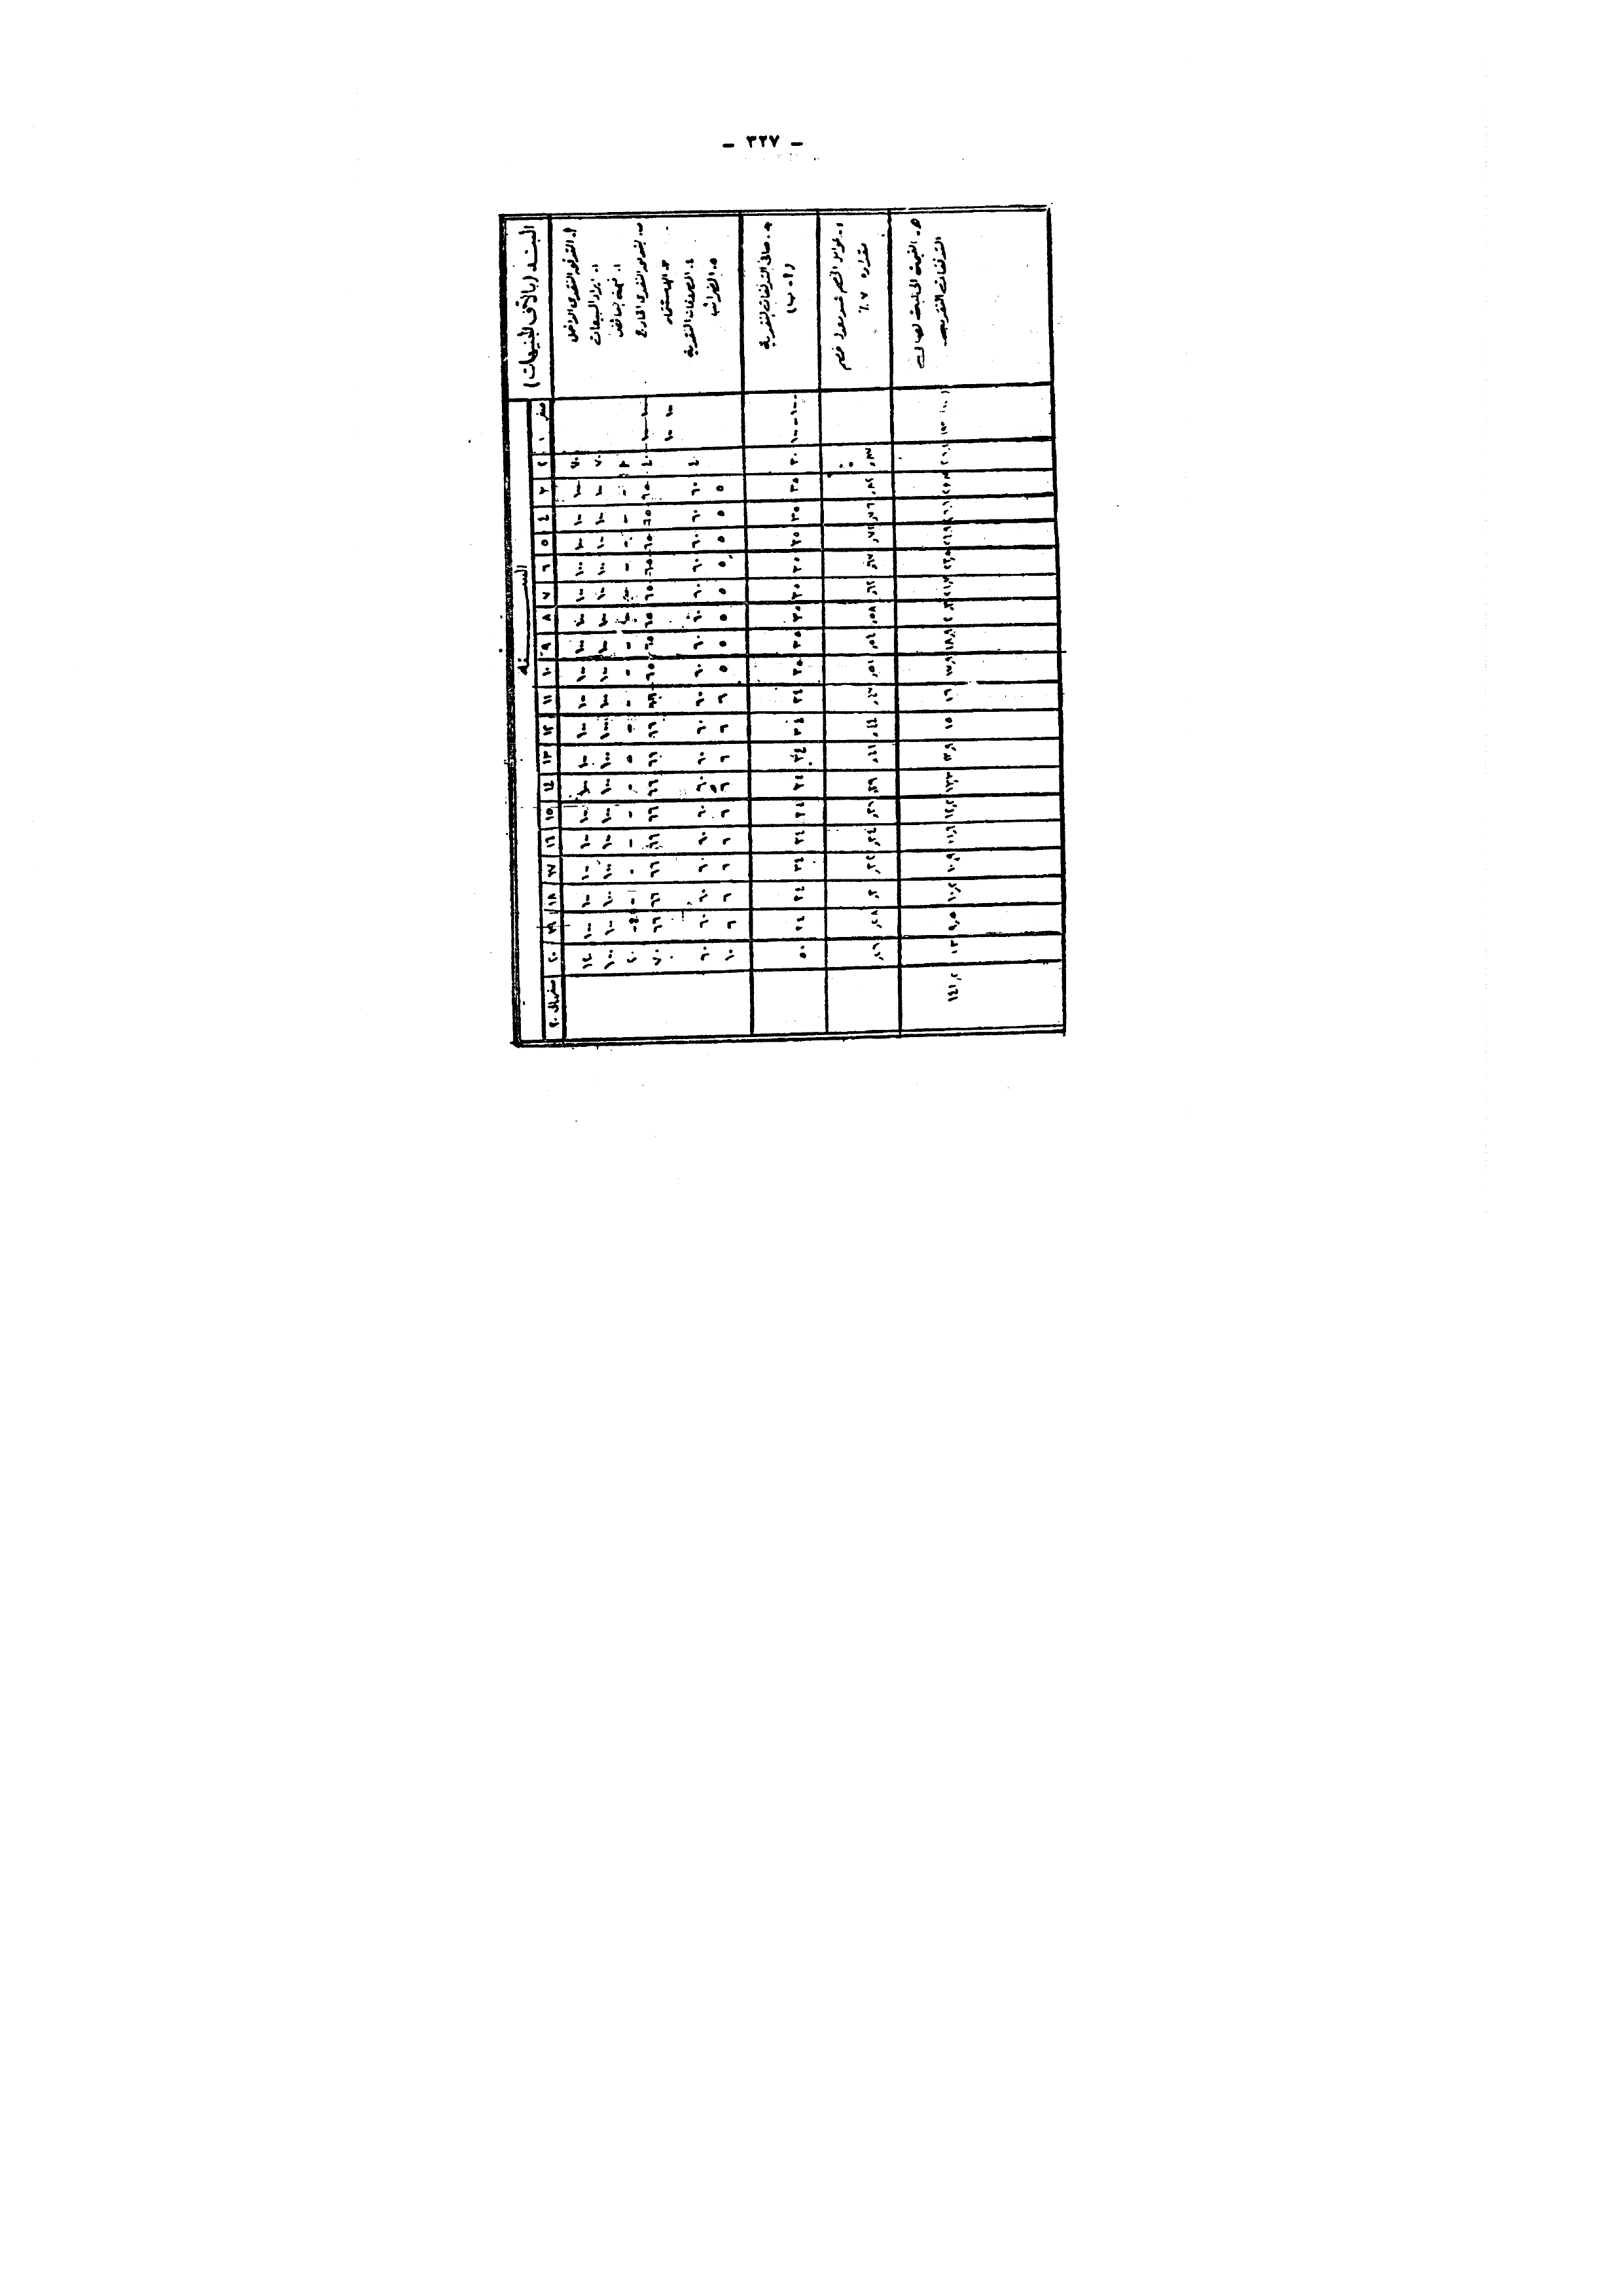 - ٣٢٧ -
البند (بالألف الجنيهات)
السنة
صفر ١ ٢ ٣ ٤ ٥ ٦ ٧ ٨ ٩ ١٠ ١١ ١٢ ١٣ ١٤ ١٥ ١٦ ١٧ ١٨ ١٩ ٢٠ صفر الى ٢٠
أ- التدفق النقدى الداخل
٧٠ ١٠٠ ١٠٠ ١٠٠ ١٠٠ ١٠٠ ١٠٠ ١٠٠ ١٠٠ ١٠٠ ١٠٠ ١٠٠ ١٠٠ ١٠٠ ١٠٠ ١٠٠ ١٠٠ ١٠٠
١- ايراد المبيعات
٧٠ ١٠٠ ١٠٠ ١٠٠ ١٠٠ ١٠٠ ١٠٠ ١٠٠ ١٠٠ ١٠٠ ١٠٠ ١٠٠ ١٠٠ ١٠٠ ١٠٠ ١٠٠ ١٠٠ ١٠٠ ١٠٠
ب- التدفق النقدى الخارج
١٠٠ ١٠٠ ٤٠ ٦٥ ٦٥ ٦٥ ٦٥ ٦٥ ٦٥ ٦٥ ٦٥ ٦٦ ٦٦ ٦٦ ٦٦ ٦٦ ٦٦ ٦٦ ٦٦ ٦٦ ٧٠
٣- الاستثمار
١٠٠ ١٠٠
٤- المصروفات النقدية
٤٠ ٦٠ ٦٠ ٦٠ ٦٠ ٦٠ ٦٠ ٦٠ ٦٠ ٦٠ ٦٠ ٦٠ ٦٠ ٦٠ ٦٠ ٦٠ ٦٠ ٦٠ ٦٠
٥- الضرائب
٥ ٥ ٥ ٥ ٥ ٥ ٥ ٥ ٦ ٦ ٦ ٦ ٦ ٦ ٦ ٦ ٦ ١٠
ج- صافى التدفقات النقدية
(أ - ب)
١٠٠- ١٠٠- ٣٠ ٣٥ ٣٥ ٣٥ ٣٥ ٣٥ ٣٥ ٣٥ ٣٥ ٣٤ ٣٤ ٣٤ ٣٤ ٣٤ ٣٤ ٣٤ ٣٤ ٣٤ ٥٠
معامل الخصم عند معدل خصم
مقداره ٧٪
,٨٧ ,٨٢ ,٧٦ ,٧١ ,٦٧ ,٦٢ ,٥٨ ,٥٤ ,٥١ ,٤٧ ,٤٤ ,٤١ ,٣٩ ,٣٦ ,٣٤ ,٣٢ ,٣٠ ,٢٨ ,٢٦
هـ- القيمة الحالية لصافى
التدفقات النقدية
٢٠,٣ ١٨,٩ ١٧,٩ ١٦ ١٥ ١٣,٩ ١٣,٣ ١٢,٢ ١١,٦ ١٠,٩ ١٠,٢ ٩,٥ ١٣ ١٤١,٢